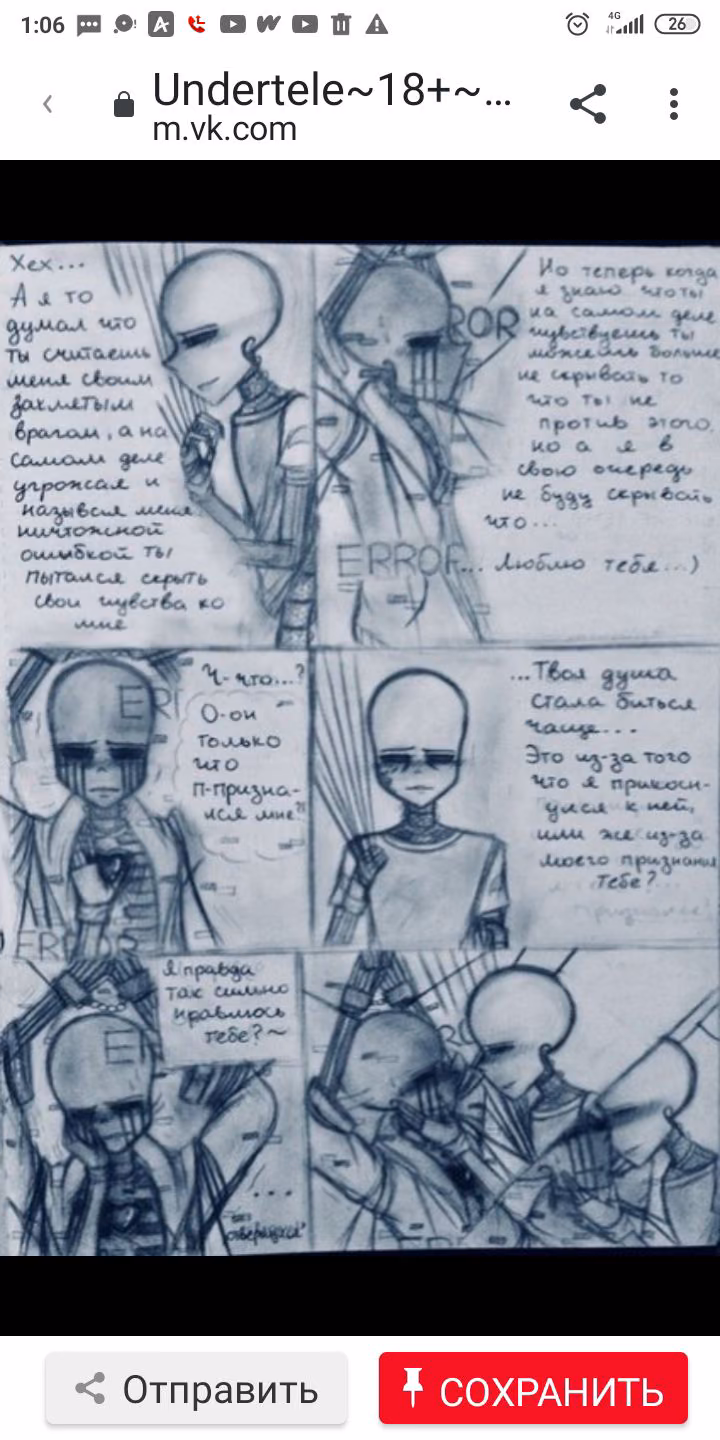 1:06
4G
26
Undertele~18+~...
m.vk.com
Хех...
А я то
думал что
ты считаешь
меня своим
заклятым
врагом, а на
самом деле
угрожая и
называя меня
ничтожной
ошибкой ты
пытался скрыть
свои чувства ко
мне
ROR
Но теперь когда
я знаю что ты
на самом деле
чувствуешь ты
можешь больше
не скрывать то
что ты не
против этого,
но а я в
свою очередь
не буду скрывать
что...
ERROR... Люблю тебя...)
ER
Ч-что...?
О-он
только
что
п-призна-
лся мне?!
ERROR
...Твоя душа
стала биться
чаще...
Это из-за того
что я прикосн-
улся к ней,
или же из-за
моего признания
тебе?
E
Я правда
так сильно
нравлюсь
тебе?~
...
Отправить
СОХРАНИТЬ